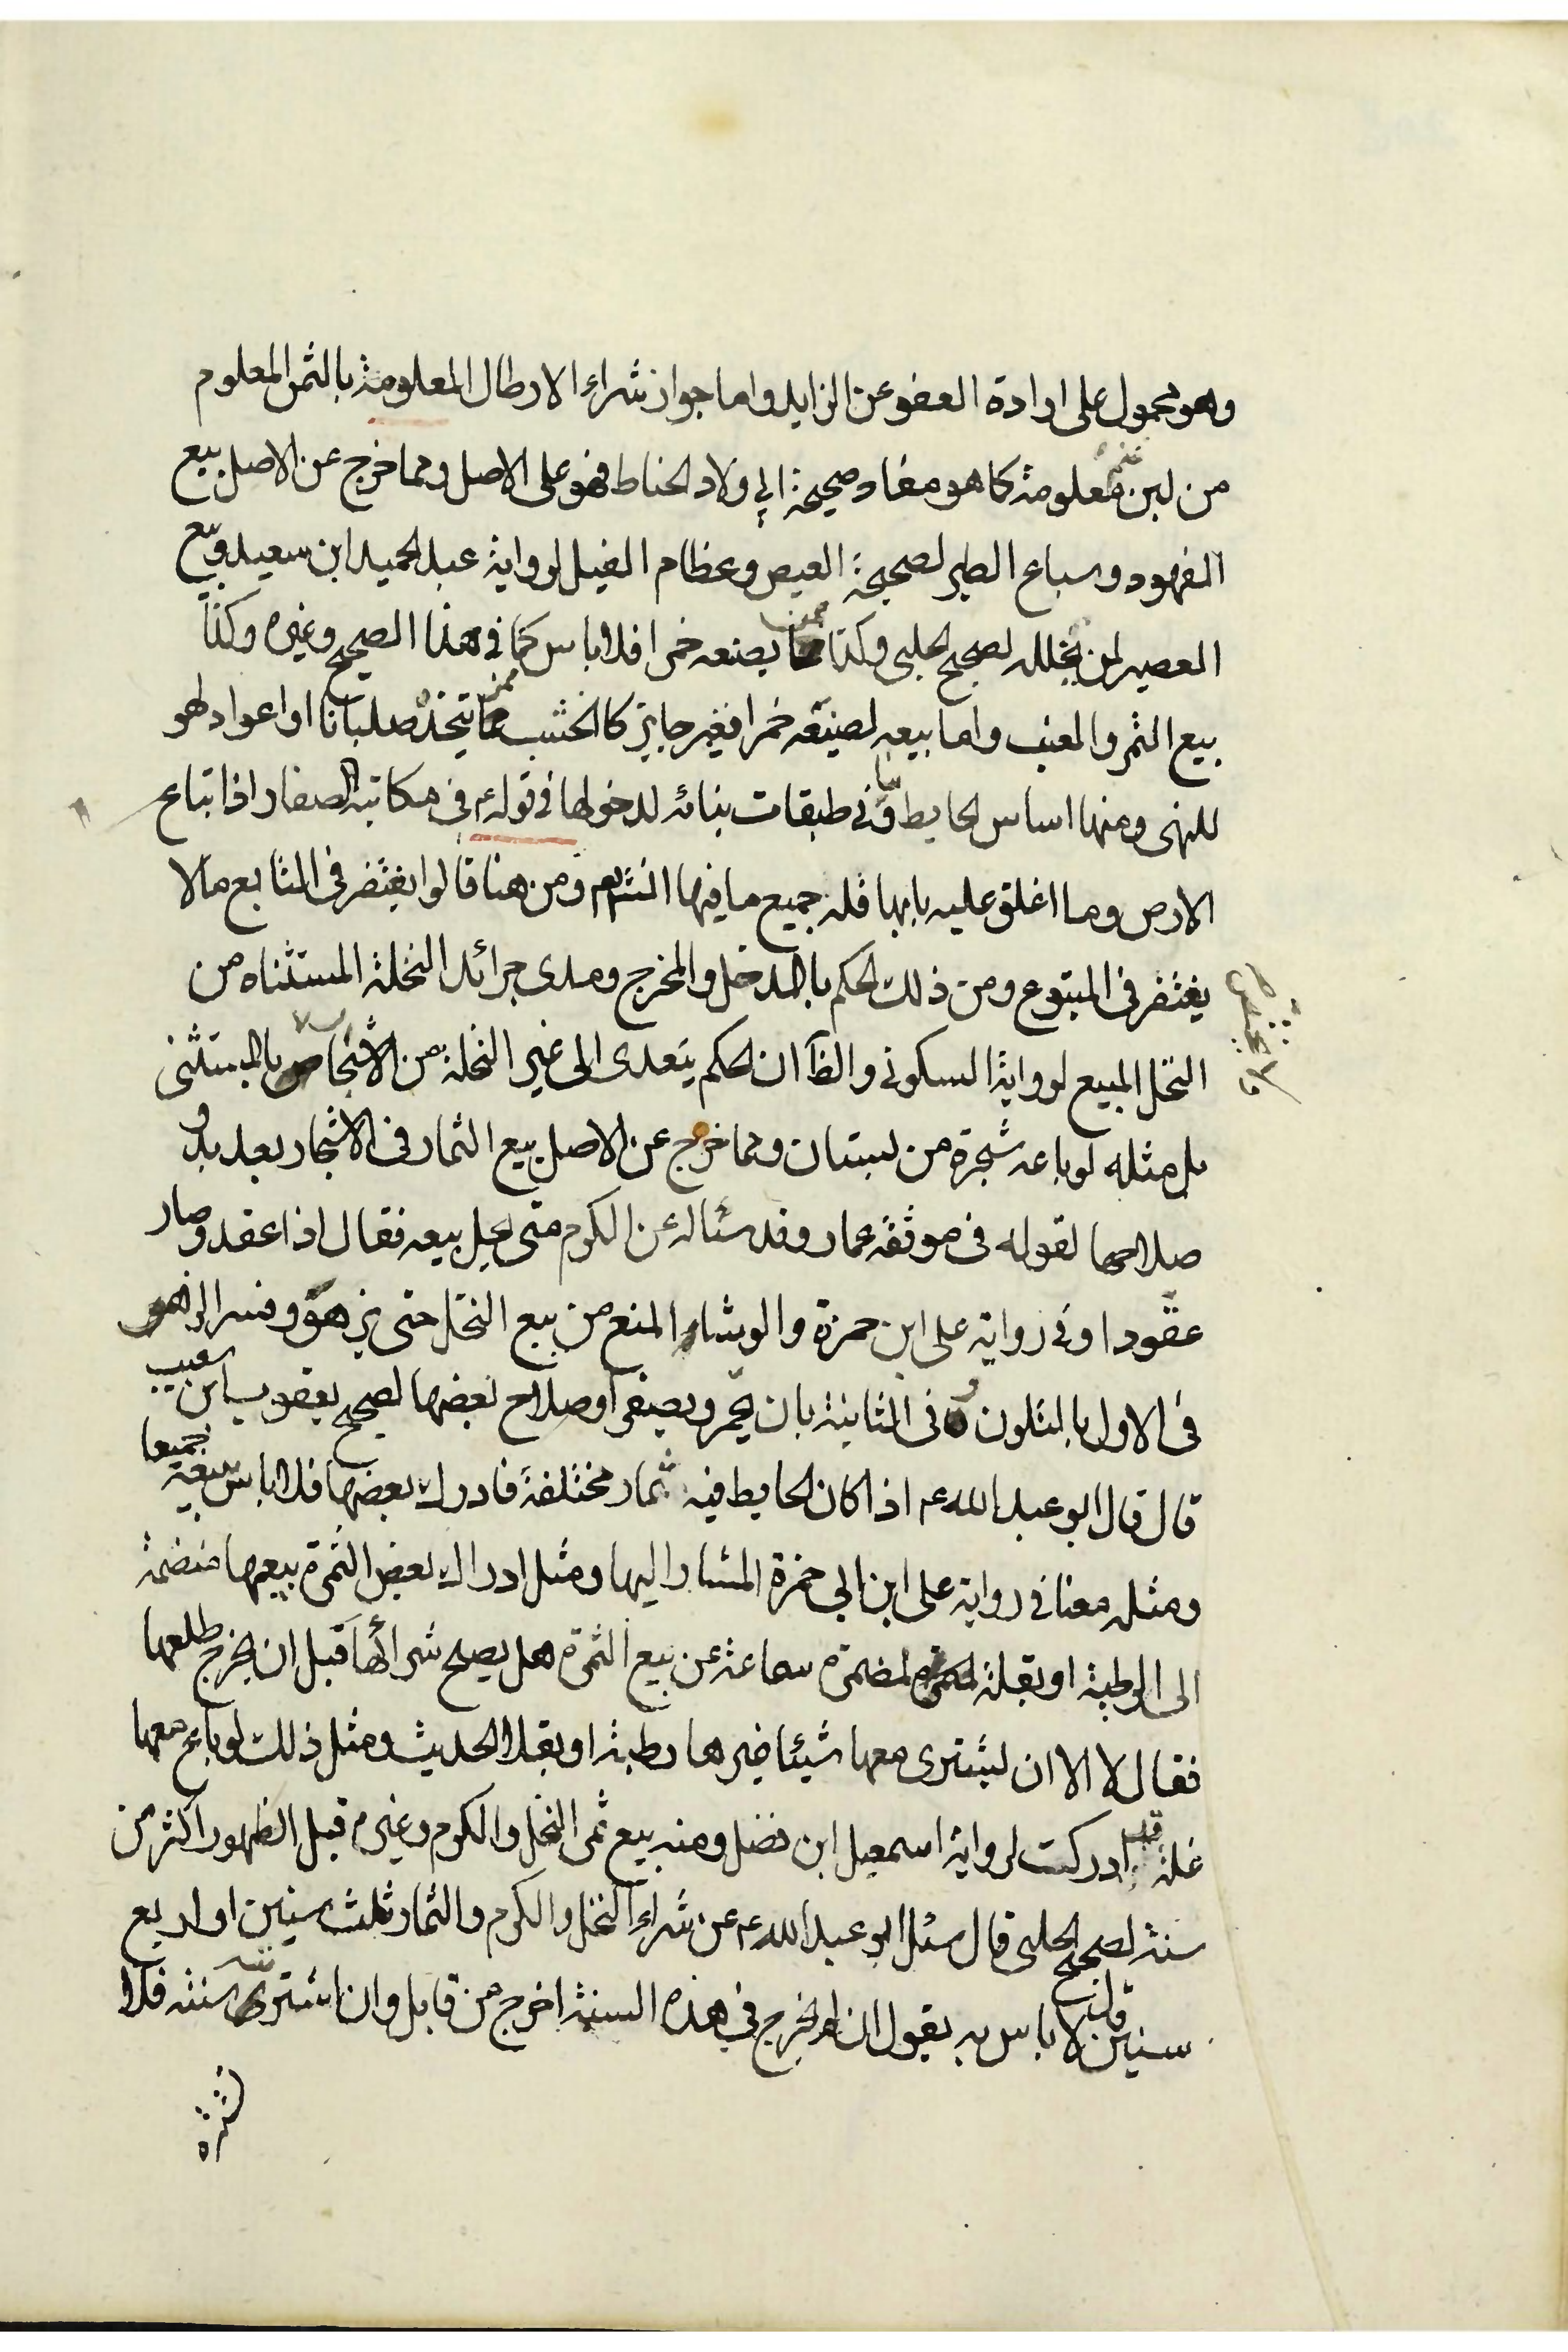 وهو محمول على ارادة العفو عن الزايد واما جواز شراء الارطال المعلومة بالثمن المعلوم
من لبن غنم معلومة كما هو مفاد صحيحة ابي ولاد الحناط فهو على الاصل ومما خرج عن الاصل بيع
الفهود وسباع الطير لصحيحة العيص وعظام الفيل لرواية عبد الحميد ابن سعيد وبيع
العصير لمن يخلله لصحيح الحلبي وكذا ممن يصنعه خمرا فلا باس كما في هذا الصحيح وغيره وكذا
بيع الثمر والعنب واما بيعه لصنيعه خمرا فغير جايز كالخشب ممن يتخذه صلبانا او اعواد لهو
للنهى ومنها اساس الحايط وما في طبقات بنائه لدخولها في قوله ع في مكاتبة الصفار اذا ابتاع
الارض وما اغلق عليه بابها فله جميع ما فيها انش ومن هنا قالوا يغتفر في التابع ما لا
يغتفر في المتبوع ومن ذلك الحكم بالمدخل والمخرج ومدى جرائد النخلة المستثناه من
النخل المبيع لرواية السكوني والظ ان الحكم يتعدى الى غير النخلة من الاشجار بالمستثنى
بل مثله لو باعه شجرة من بستان ومما خرج عن الاصل بيع الثمار في الاشجار بعد بدو
صلاحها لقوله في موثقه عمار وقد سئاله عن الكرم متى يحل بيعه فقال اذا عقد وصار
عقودا وفي رواية على ابن حمزة والوشاء المنع من بيع النخل حتى يزهو وفسر الزهو
في الاول بالتلون وفى الثانية بان يحمر ويصفر او صلاح بعضها لصحيح يعقوب ابن شعيب
قال قال ابو عبد الله ع اذا كان الحايط فيه ثمار مختلفة فادرك بعضها فلا باس ببيعه جميعا
ومثله معنا في رواية على ابن ابي حمزة المشار اليها ومثل ادراك بعض الثمرة بيعها منضمة
الى الرطبة او بقلة لمضمرة سماعة عن بيع الثمرة هل يصلح شرائها قبل ان يخرج طلعها
فقال لا الا ان يشترى معها شيئا غيرها رطبة او بقلا الحديث ومثل ذلك لو باع معها
غلة قد ادركت لرواية اسمعيل ابن فضل ومنه بيع ثمر النخل والكرم وغيره قبل الظهور اكثر من
سنة لصحيح الحلبي قال سئل ابو عبد الله ع عن شراء النخل والكرم والثمار ثلث سنين او اربع
سنين قال لا باس به يقول ان لم يخرج في هذه السنة اخرج من قابل وان اشتريته سنته فلا
تشتره